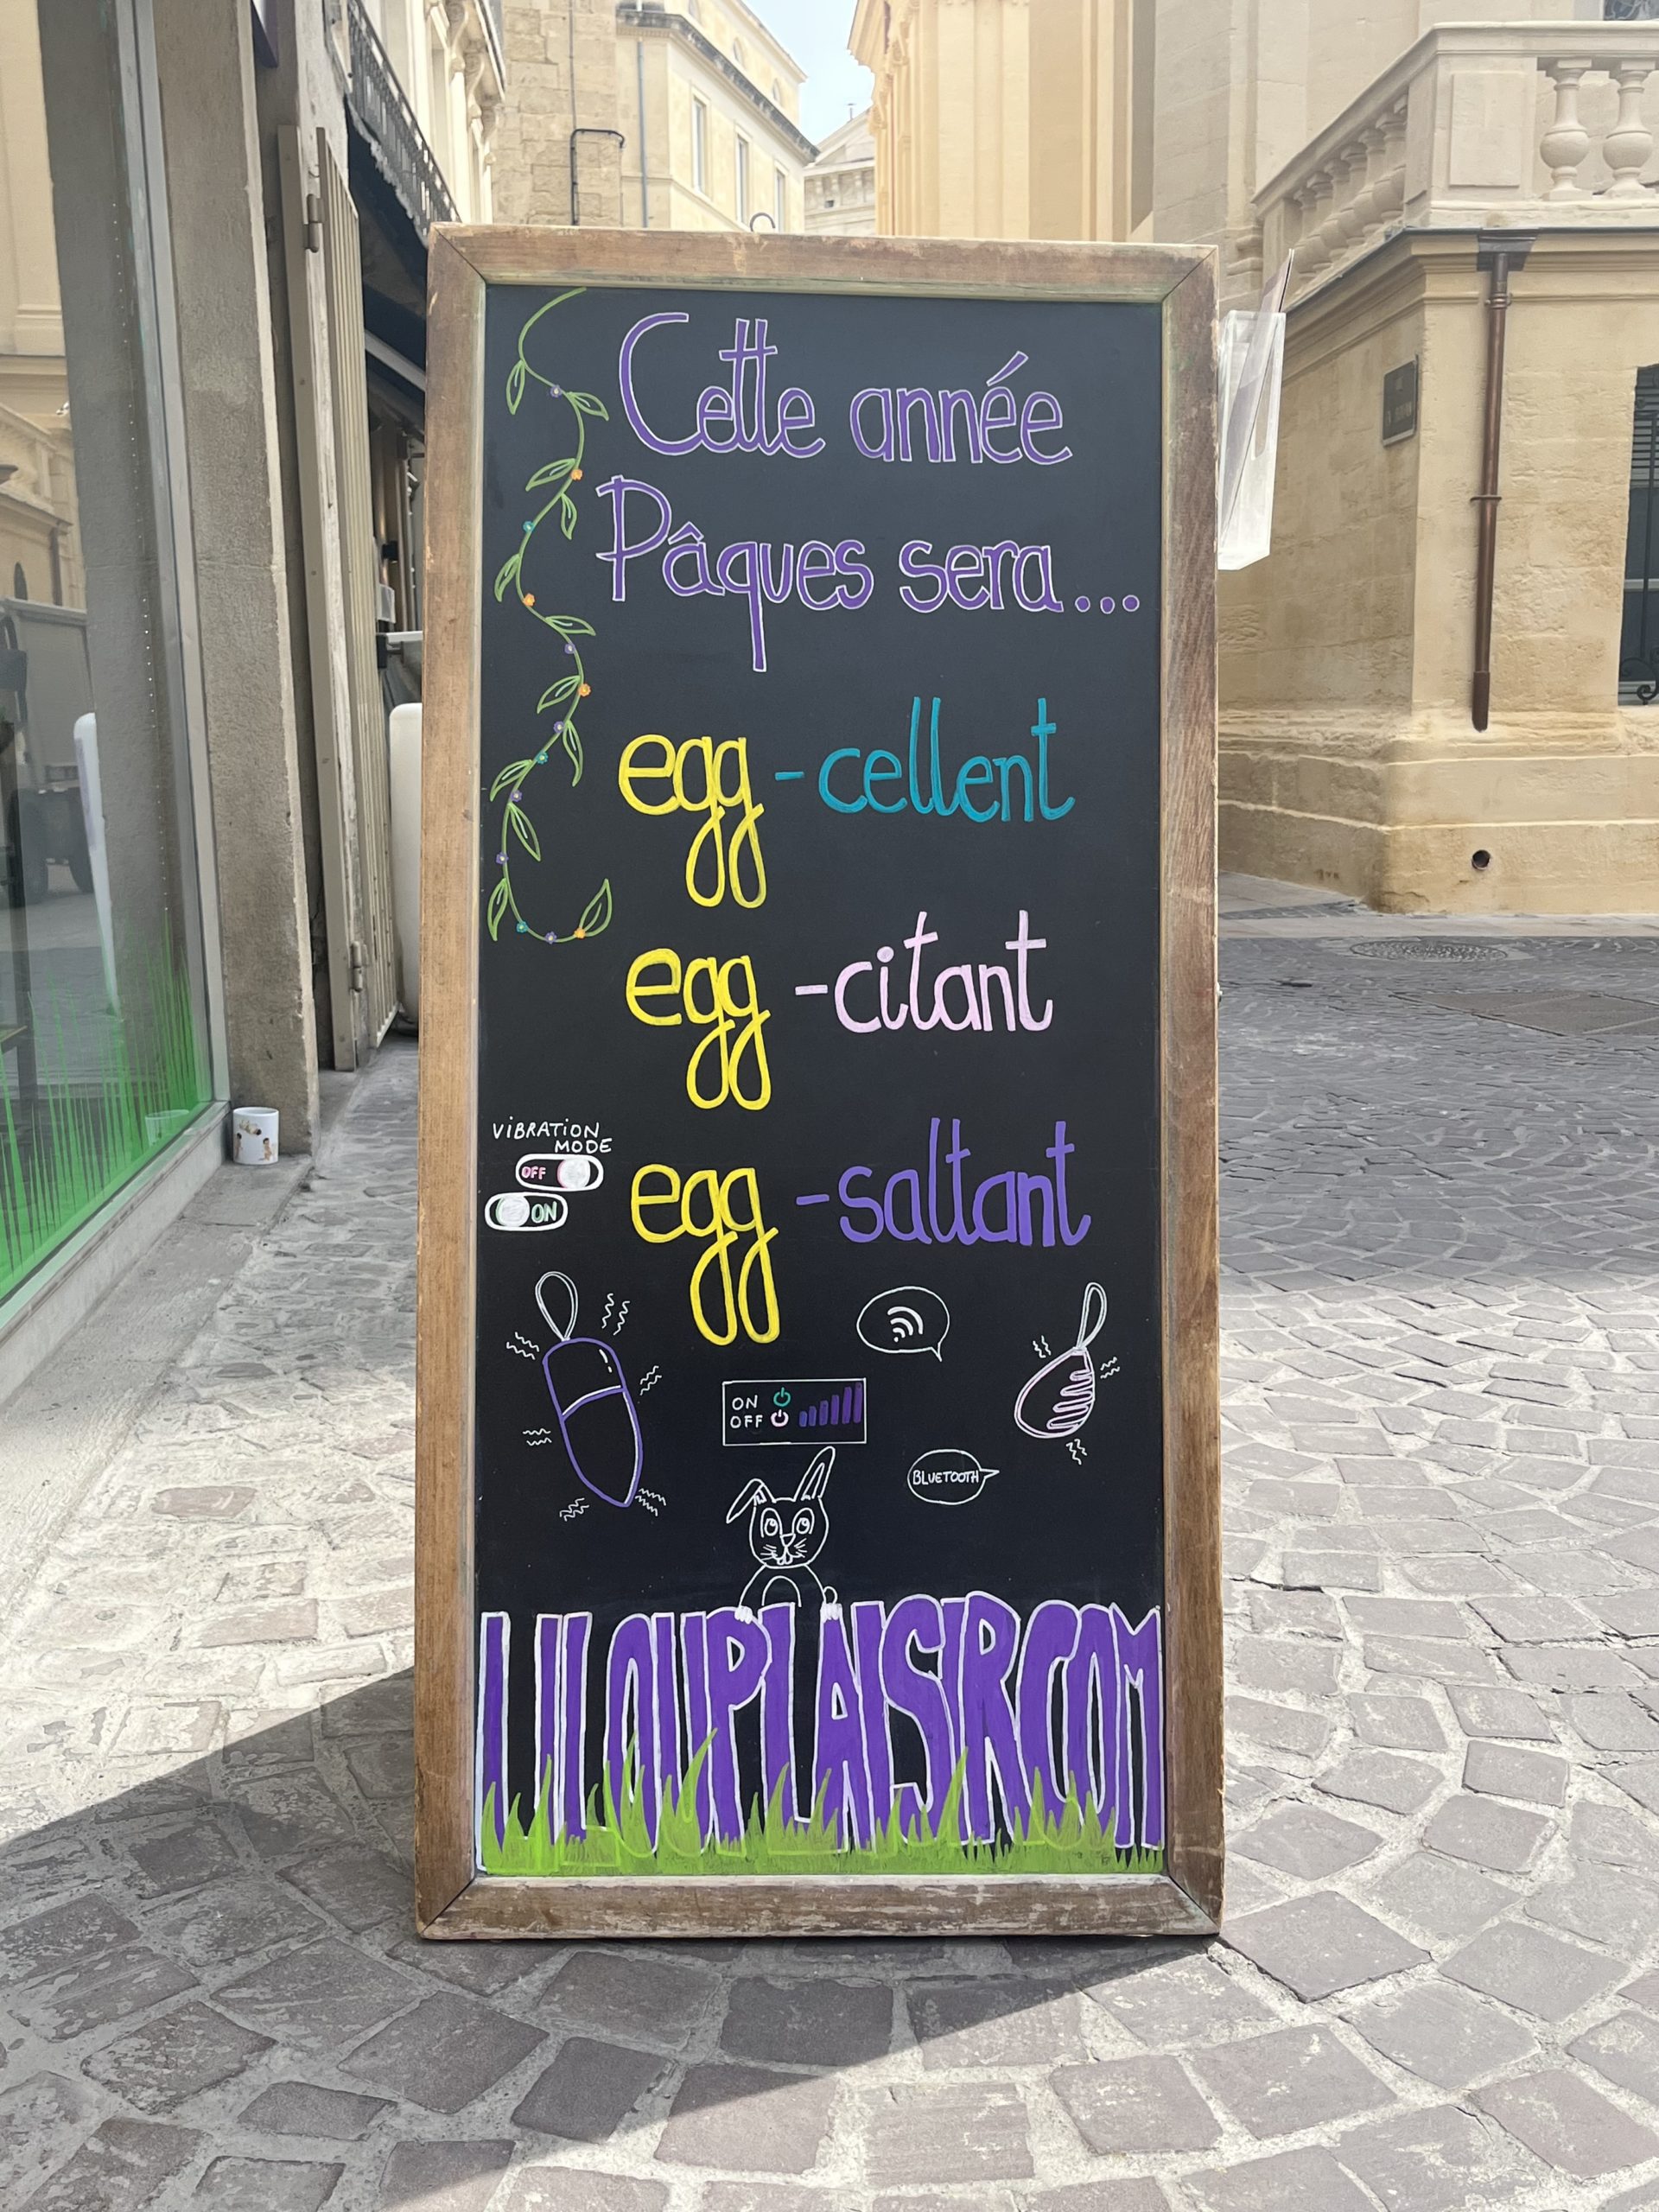 Cette année
Pâques sera...
egg-cellent
egg-citant
VIBRATION
MODE
OFF
ON
egg-saltant
ON
OFF
BLUETOOTH
LILOUPLAISIR.COM